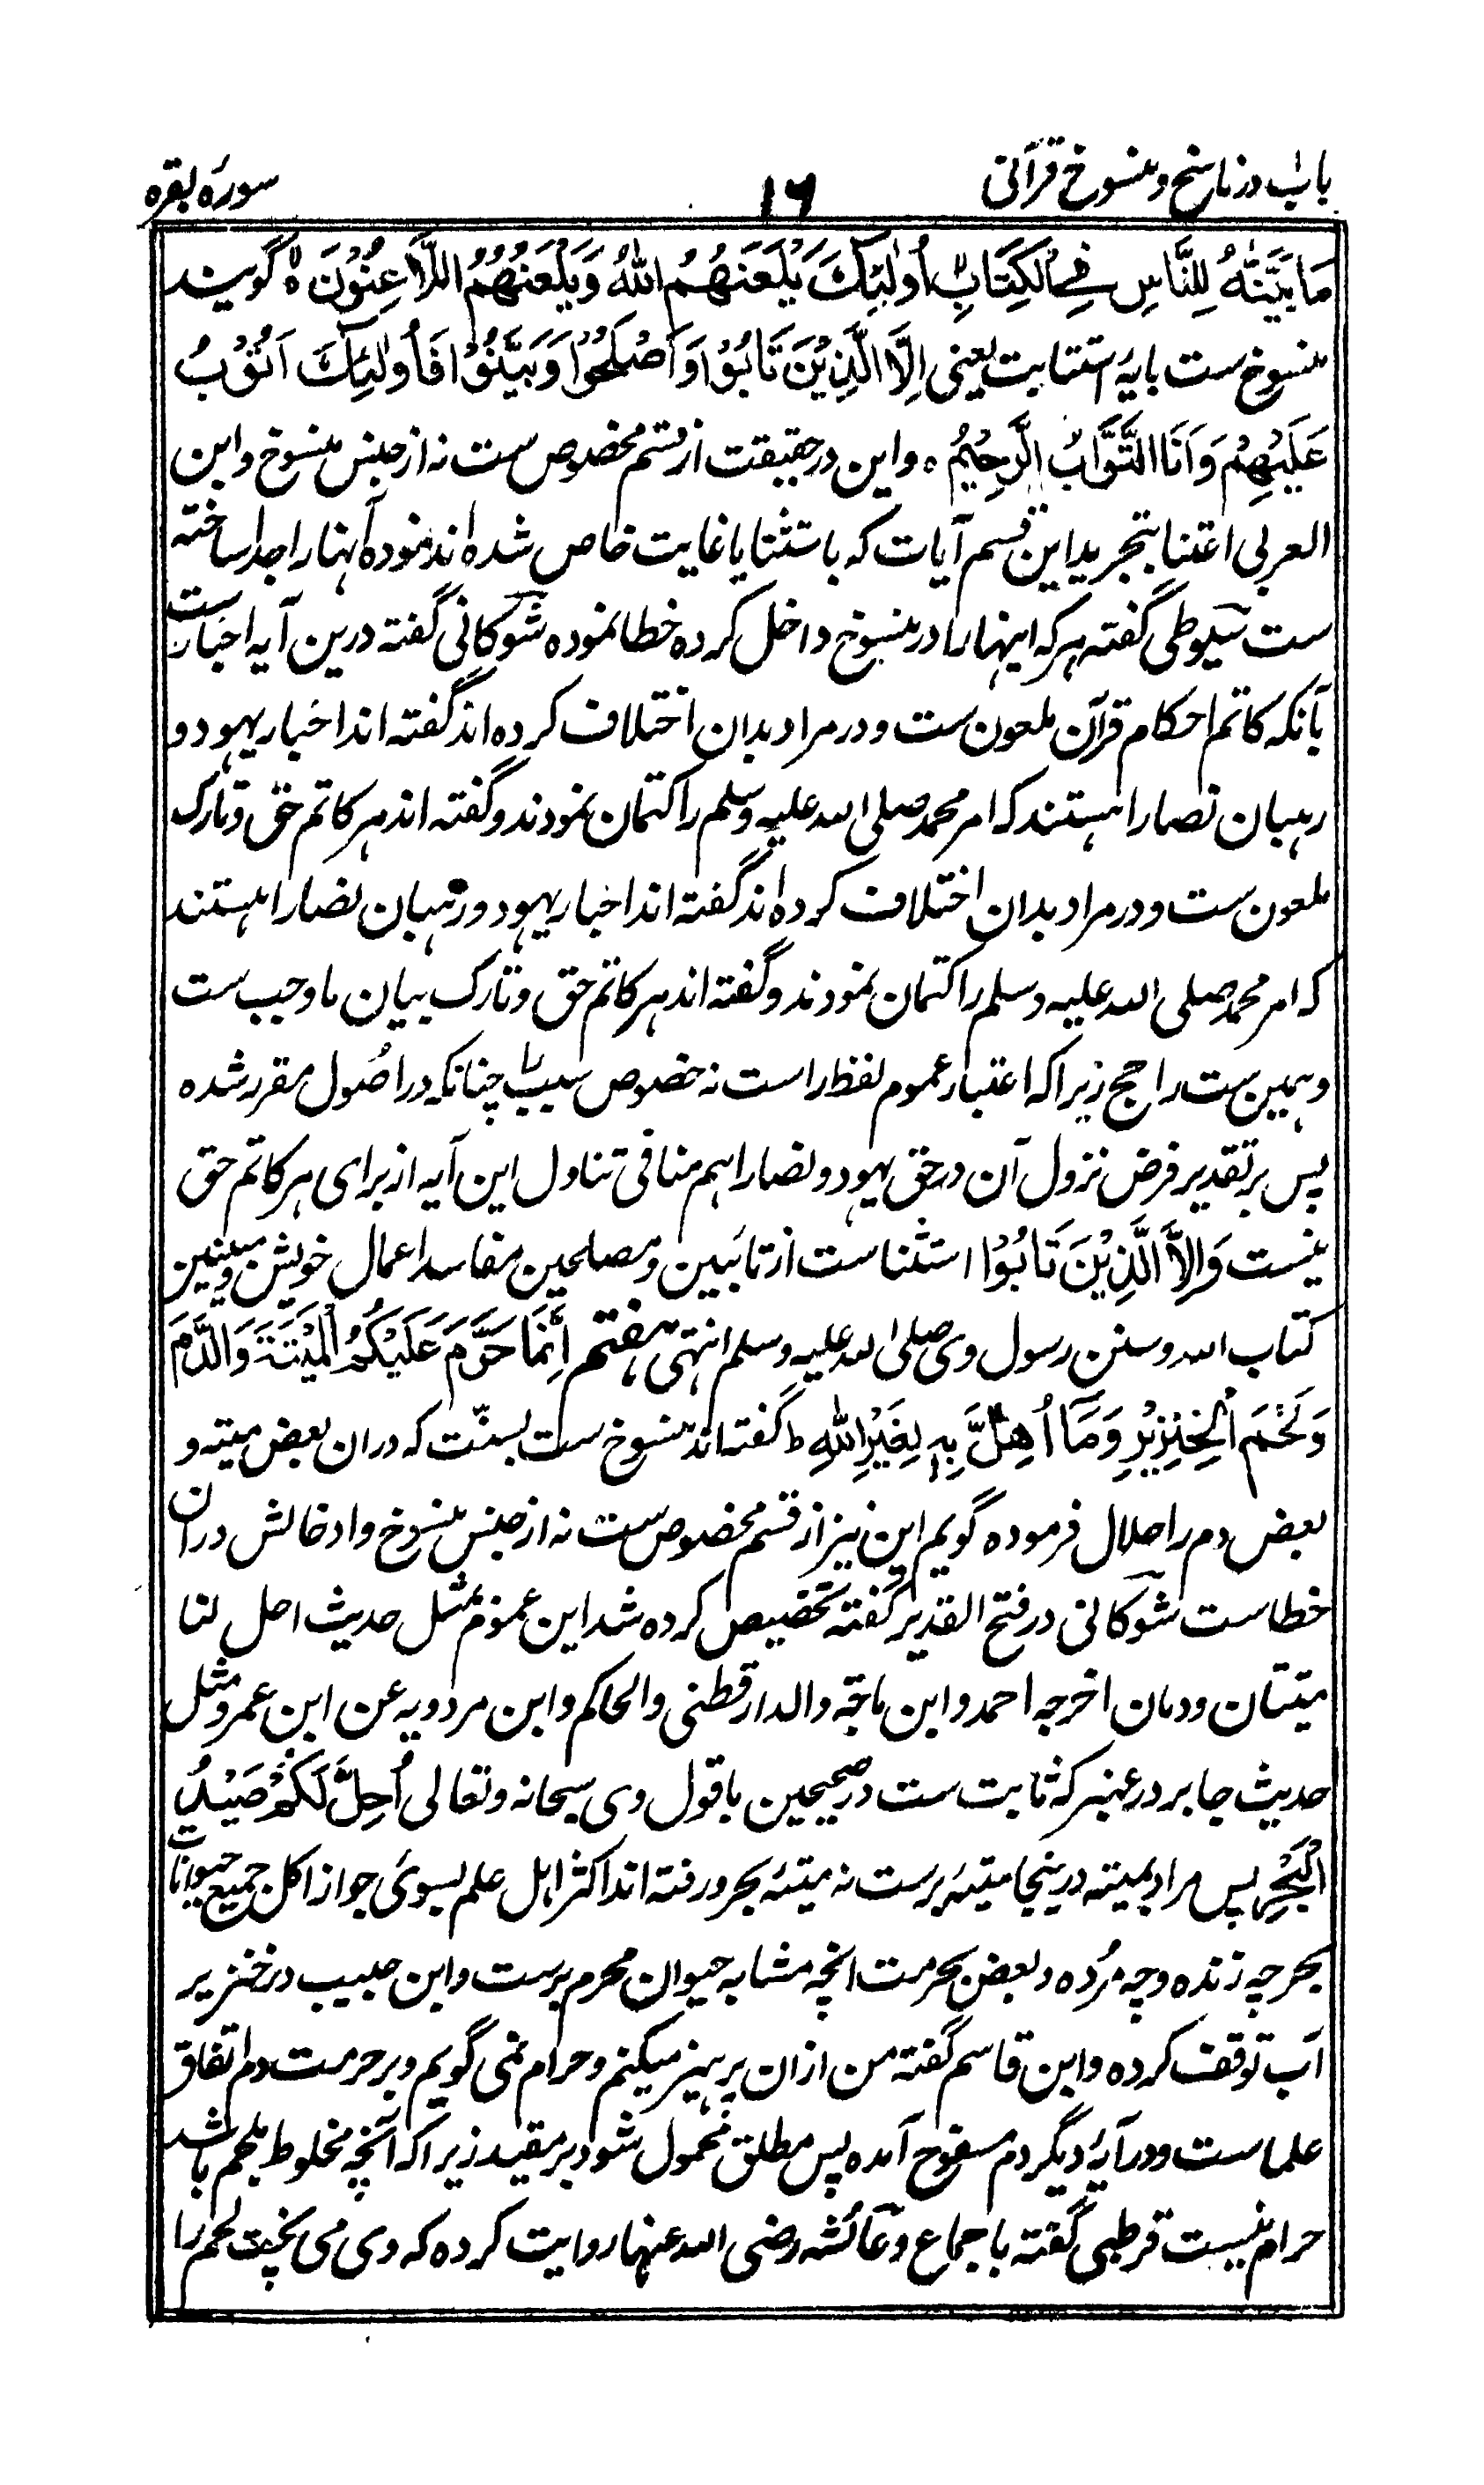 باب در ناسخ و منسوخ قرآنی
۱۶
سورۂ بقرہ
مَا بَيَّنّٰهُ لِلنَّاسِ فِي الْكِتَابِ اُولٰٓئِكَ يَلْعَنُهُمُ اللّٰهُ وَيَلْعَنُهُمُ اللّٰعِنُوْنَ ہ گویند
منسوخ ست بآیۂ استتابت یعنی اِلَّا الَّذِيْنَ تَابُوْا وَاَصْلَحُوْا وَبَيَّنُوْا فَاُولٰٓئِكَ اَتُوْبُ
عَلَيْهِمْ وَاَنَا التَّوَّابُ الرَّحِيْمُ ہ و این در حقیقت از قسم مخصوص ست نہ از جنس منسوخ و ابن
العربی اعتنا بتجرید این قسم آیات کہ باستثنا یا غایت خاص شدہ اند نمودہ آنہا را جدا ساختہ
ست سیوطی گفتہ ہر کہ اینہا را در منسوخ داخل کردہ خطا نمودہ شوکانی گفتہ درین آیہ اخبارست
بآنکہ کاتم احکام قرآن ملعون ست و در مراد بدان اختلاف کردہ اند گفتہ اند احبار یہود و
رہبان نصارا ہستند کہ امر محمد صلی اللہ علیہ وسلم را کتمان نمودند و گفتہ اند ہر کاتم حق و تارک
ملعون ست و در مراد بدان اختلاف کردہ اند گفتہ اند احبار یہود و رہبان نصارا ہستند
کہ امر محمد صلی اللہ علیہ وسلم را کتمان نمودند و گفتہ اند ہر کاتم حق و تارک بیان ما وجب ست
و ہمین ست راجح زیرا کہ اعتبار عموم لفظ راست نہ خصوص سبب چنانکہ در اصُول مقرر شدہ
پس بر تقدیر فرض نزول آن در حق یہود و نصارا ہم منافی تناول این آیہ از برای ہر کاتم حق
نیست وَاِلَّا الَّذِيْنَ تَابُوْا استثنا ست از تائبین و مصلحین مفاسد اعمال خویش و مبینین
کتاب اللہ و سنن رسول وی صلی اللہ علیہ وسلم انتہی ہفتم اِنَّمَا حَرَّمَ عَلَيْكُمُ الْمَيْتَةَ وَالدَّمَ
وَلَحْمَ الْخِنْزِيْرِ وَمَآ اُهِلَّ بِهٖ لِغَيْرِ اللّٰهِ ط گفتہ اند منسوخ ست بسنّت کہ دران بعض میتہ و
بعض دم را حلال فرمودہ گویم این نیز از قسم مخصوص ست نہ از جنس منسوخ و ادخالش دران
خطاست شوکانی در فتح القدیر گفتہ تخصیص کردہ شد این عموم بمثل حدیث احل لنا
میتتان و دمان اخرجہ احمد و ابن ماجۃ والدارقطنی والحاکم و ابن مردویہ عن ابن عمر و مثل
حدیث جابر در عنبر کہ ثابت ست در صحیحین با قول وی سبحانہ و تعالی اُحِلَّ لَكُمْ صَيْدُ
الْبَحْرِ پس مراد بمیتہ درینجا میتۂ برست نہ میتۂ بحر و رفتہ اند اکثر اہل علم بسوئ جواز اکل جمیع حیوانات
بحر چہ زندہ و چہ مُردہ و بعض بحرمت انچہ مشابہ حیوان محرم برست و ابن حبیب در خنزیر
آب توقف کردہ و ابن قاسم گفتہ من ازان پرہیز میکنم و حرام نمی گویم و بر حرمت دم اتفاق
علماست و در آیۂ دیگر دم مسفوح آمدہ پس مطلق محمول شود بر مقید زیرا کہ آنچہ مخلوط بلحم باشد
حرام نیست قرطبی گفتہ باجماع و عائشہ رضی اللہ عنہا روایت کردہ کہ وی می پخت لحم را